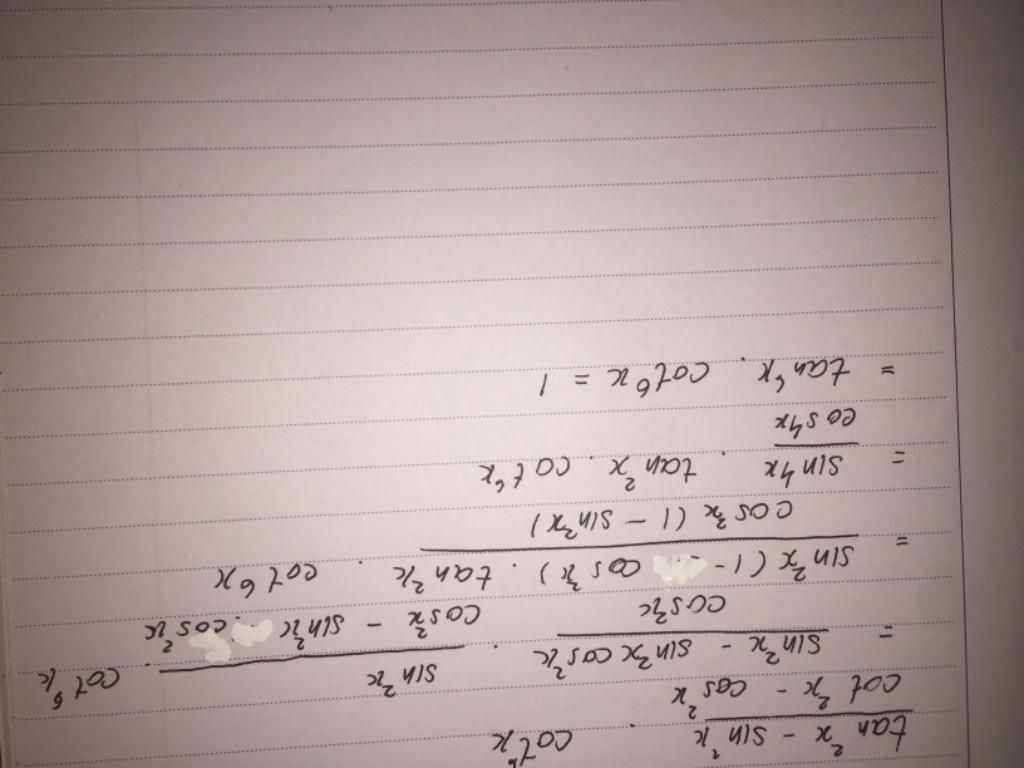 tan²x - sin²x / cot²x - cos²x . cot⁶x
= sin²x - sin²x cos²x / cos²x . sin²x / cos²x - sin²x . cos²x . cot⁶x
= sin²x (1 - cos²x) / cos²x (1 - sin²x) . tan²x . cot⁶x
= sin4x / cos4x . tan²x . cot⁶x
= tan⁶x . cot⁶x = 1